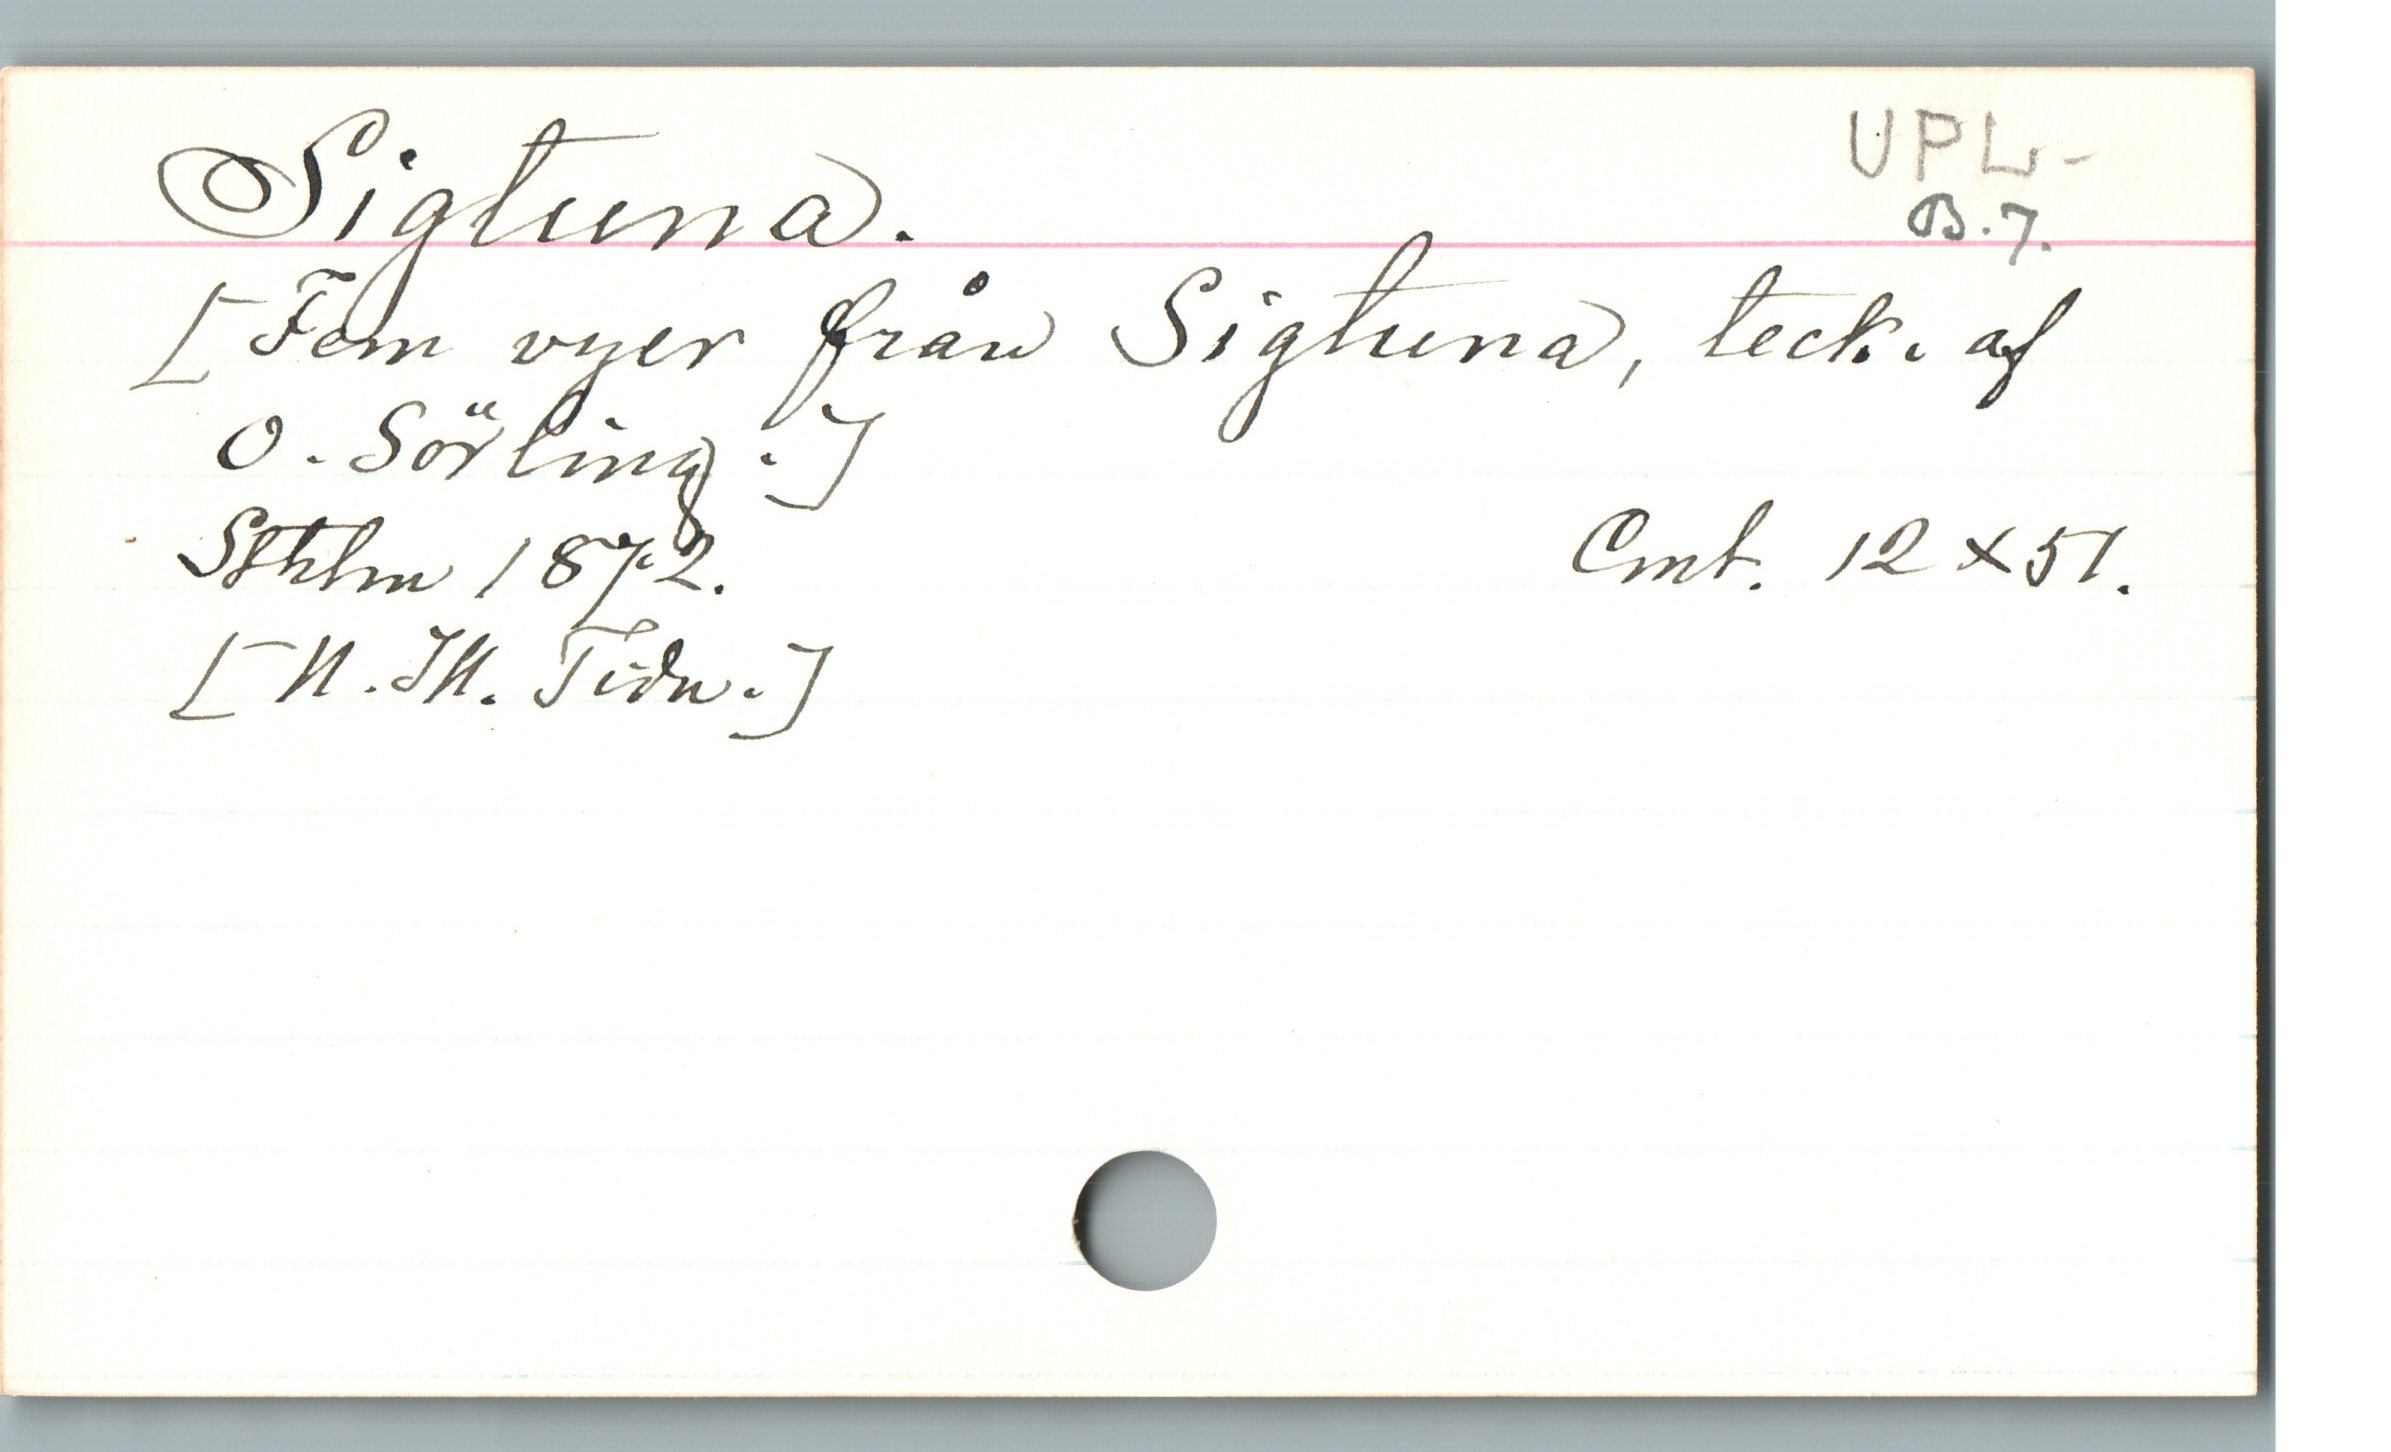 Sigtuna.
UPL-
B.7.
[Fem vyer från Sigtuna, teck. af
O. Sörling.]
Sthlm 1872. Cmt. 12 x 51.
[N. Ill. Tidn.]